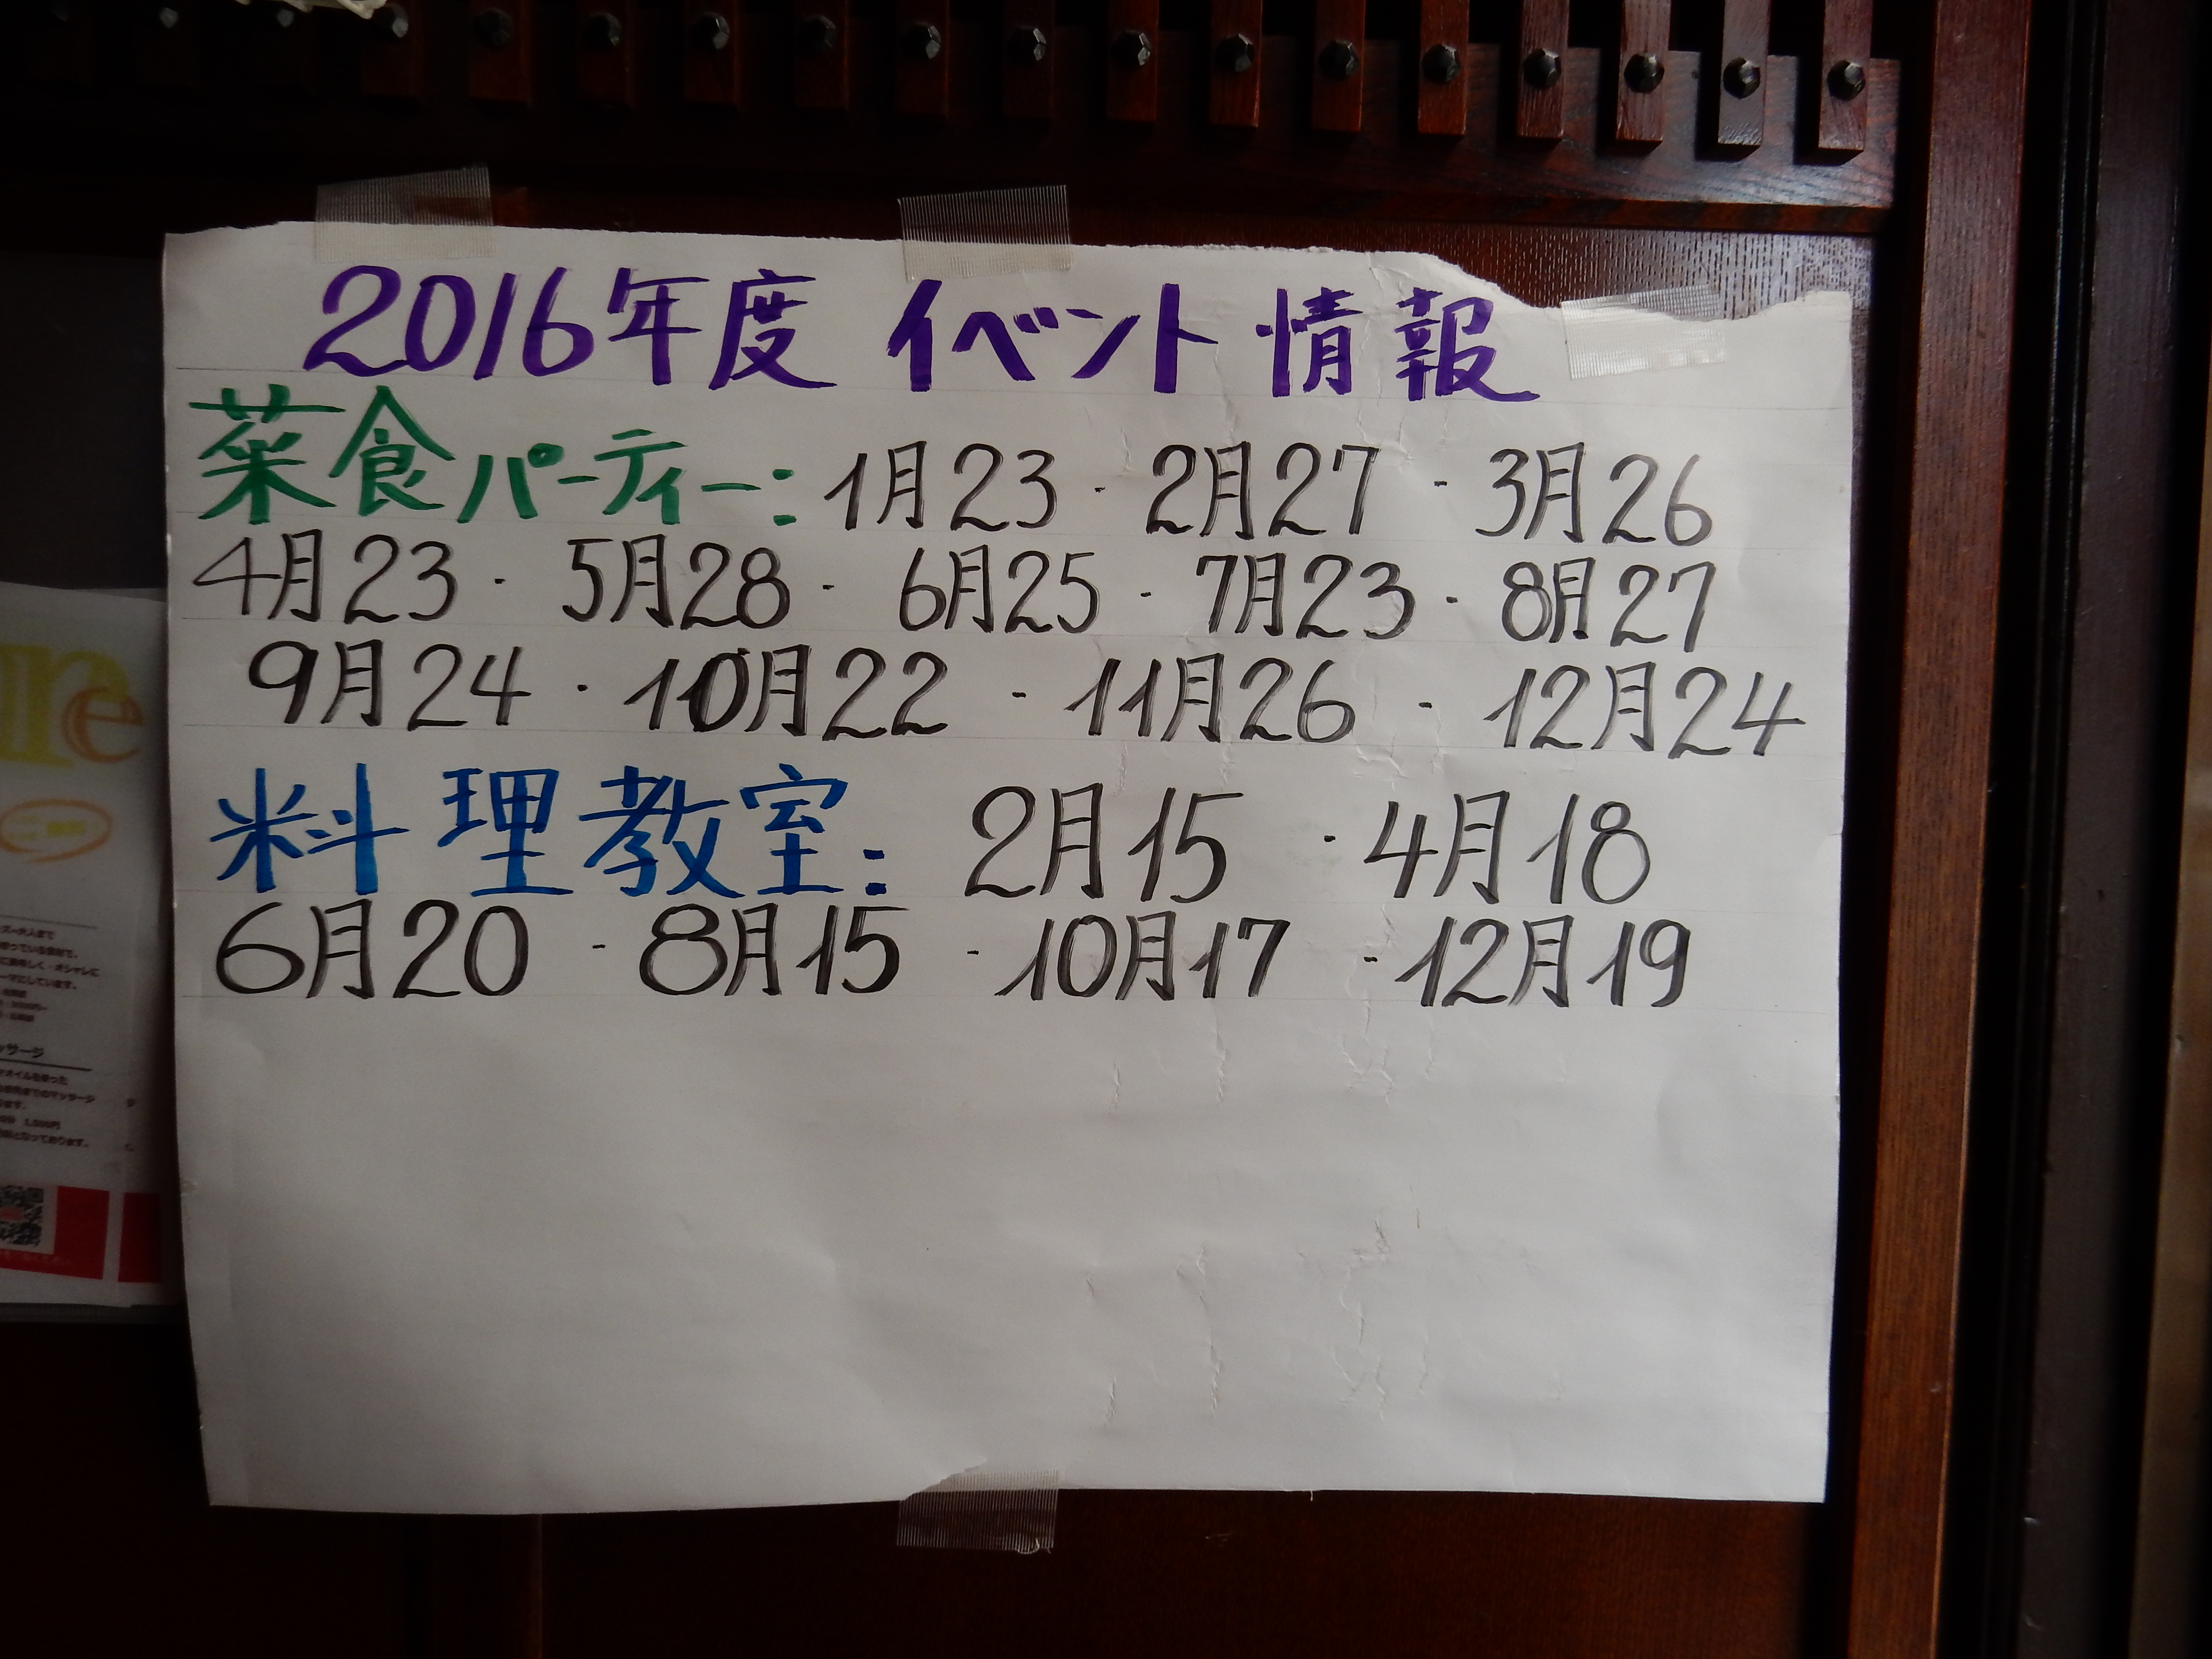 2016年度 イベント 情報
菜食パーティー: 1月23・2月27・3月26
4月23・5月28・6月25・7月23・8月27
9月24・10月22・11月26・12月24
料理教室: 2月15・4月18
6月20・8月15・10月17・12月19
re
ッサージ